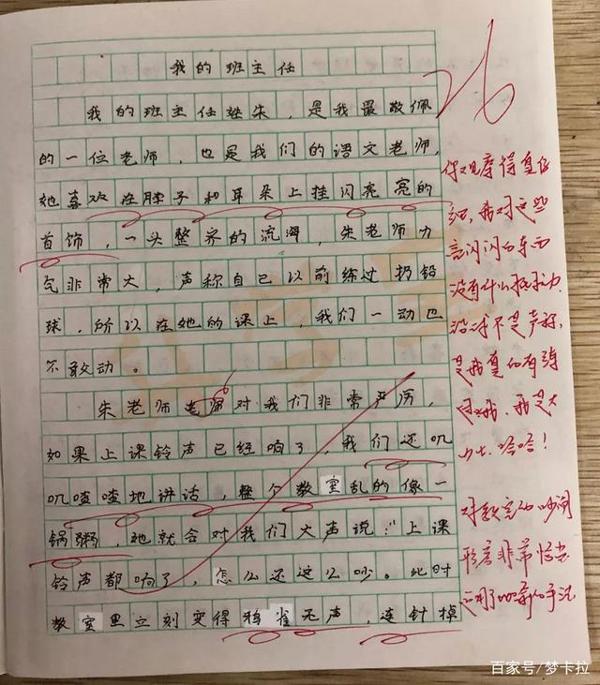 26
我的班主任
我的班主任姓朱，是我最敬佩
的一位老师，也是我们的语文老师，
她喜欢在脖子和耳朵上挂闪亮亮的
首饰，一头整齐的流海，朱老师力
气非常大，声称自己以前练过扔铅
球，所以在她的课上，我们一动也
不敢动。
朱老师老师对我们非常严厉，
如果上课铃声已经响了，我们还叽
叽喳喳地讲话，整个教室乱的像一
锅粥，她就会对我们大声说：“上课
铃声都响了，怎么还这么吵。此时
教室里立刻变得鸦雀无声，连针掉
你观察得真仔
细，我对这些
亮闪闪的东西
没有什么抵抗力
不是声称，
是我真的有练
我是大
力士，哈哈！
对教室的吵闹
形容非常恰当
运用了比喻的手法
百家号/梦卡拉